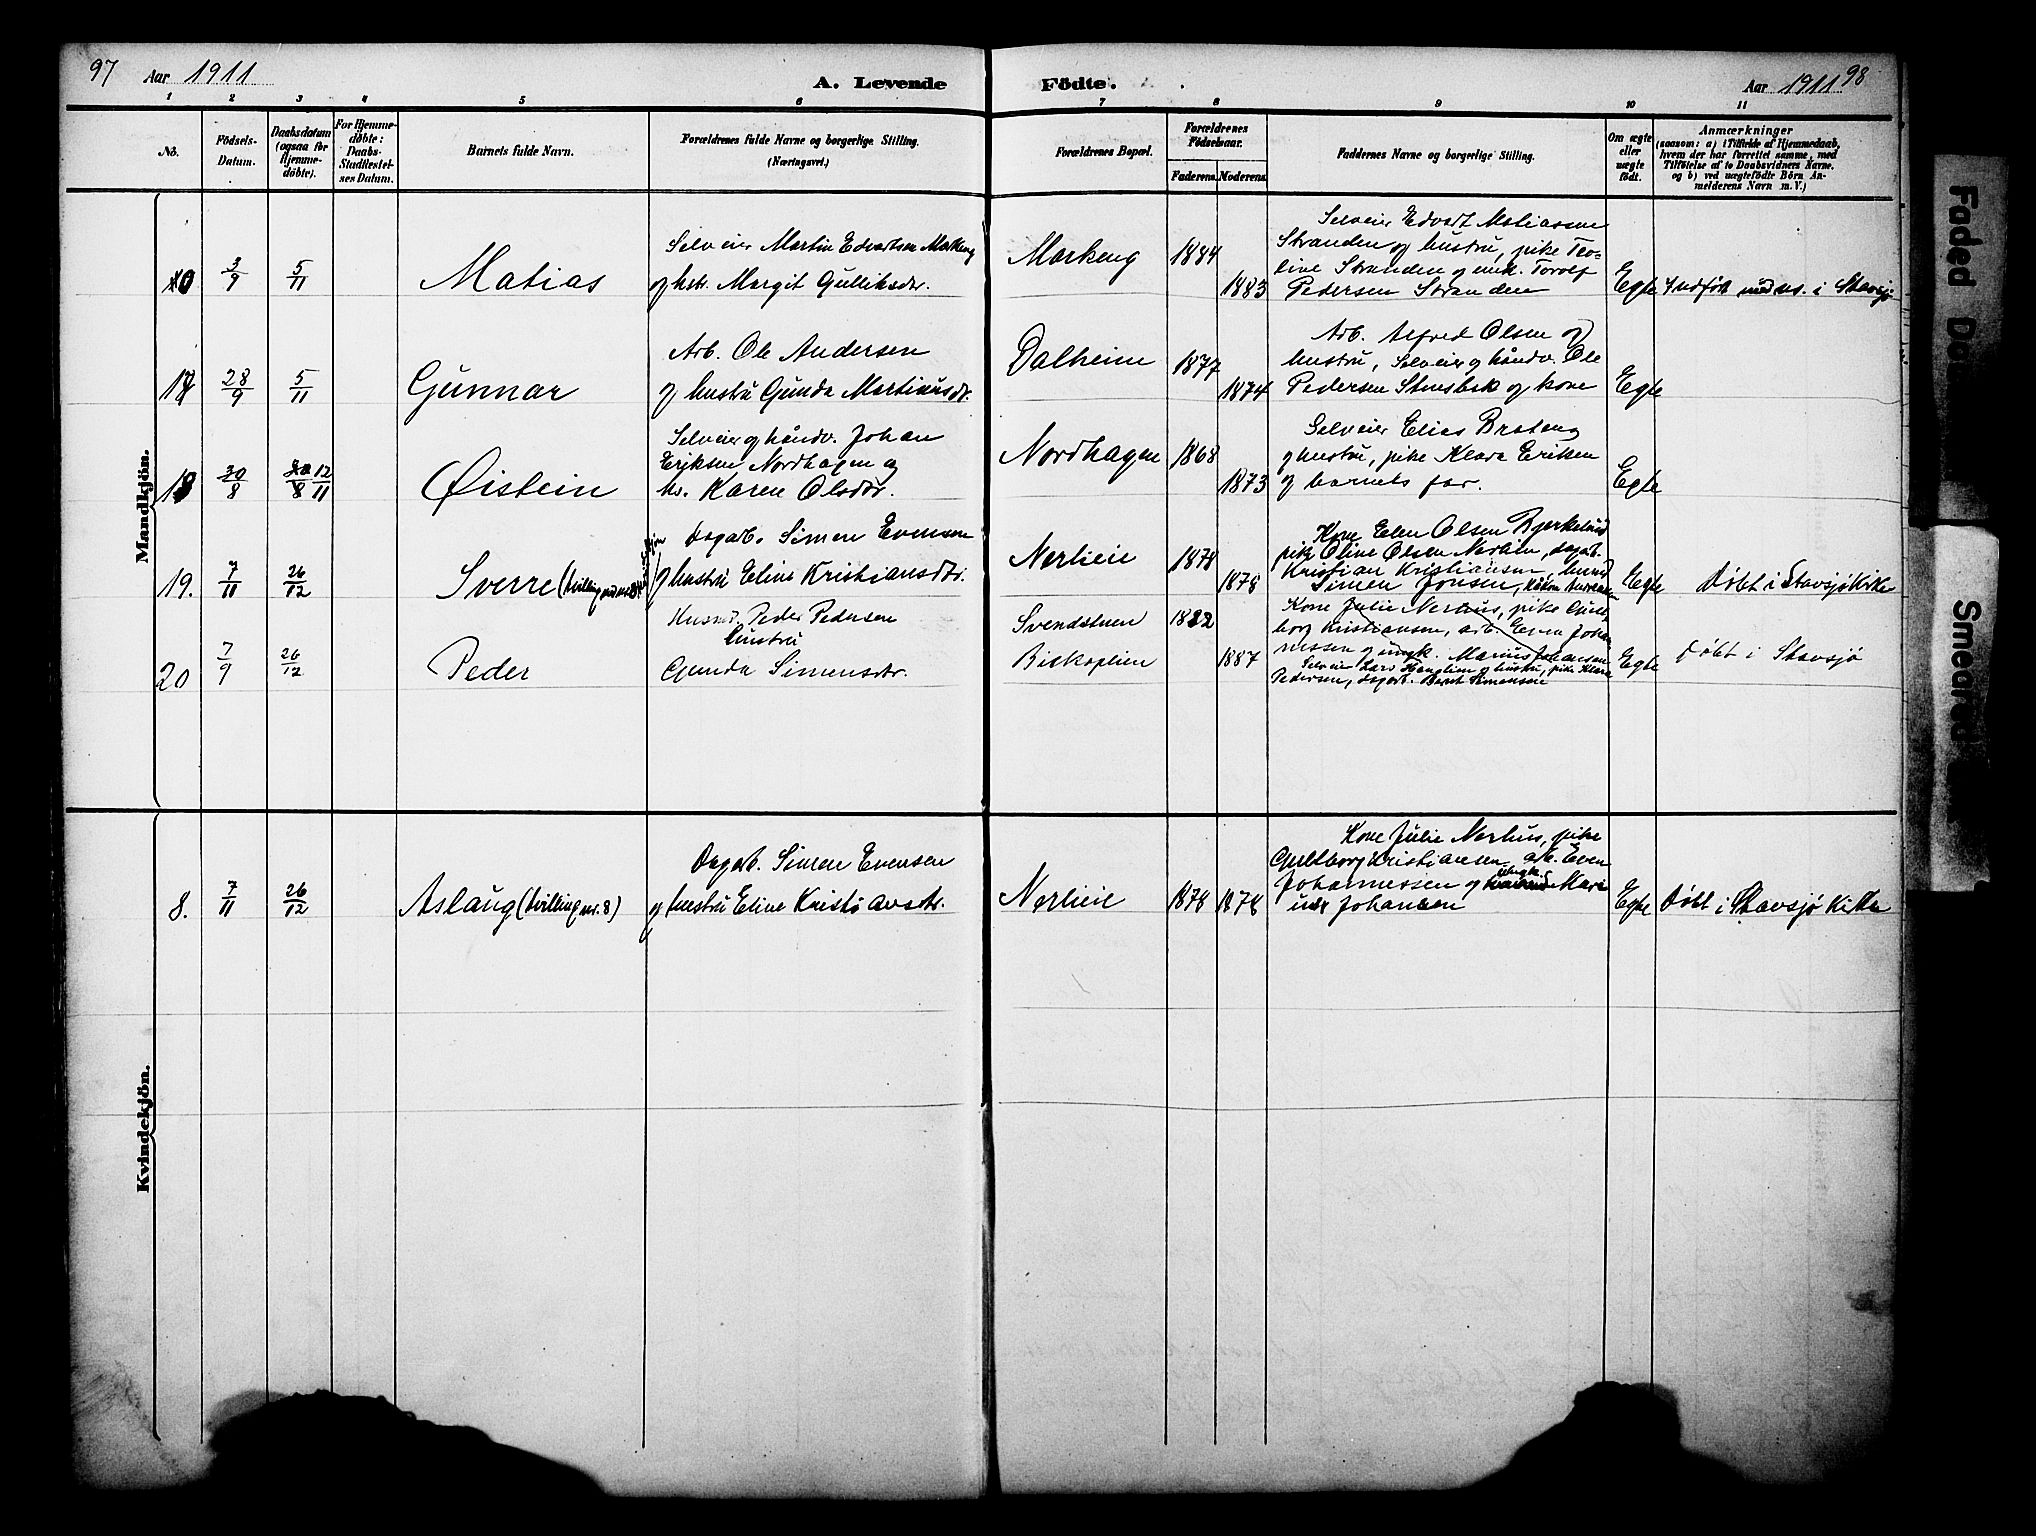 97 Aar 1911
A. Levende Födte.
Aar 1911 98
1 2 3 4 5 6 7 8 9 10 11
No.
Födsels-
Datum.
Daabsdatum
(ogsaa for
Hjemme-
döbte).
For Hjemme-
döbte:
Daabs-
Stadfæstel-
ses Datum.
Barnets fulde Navn.
Forældrenes fulde Navne og borgerlige Stilling.
(Næringsvei.)
Forældrenes Bopæl.
Forældrenes
Födselsaar.
Faderens. Moderens.
Faddernes Navne og borgerlige Stilling.
Om ægte
eller
uægte
födt.
Anmærkninger
(saasom: a) i Tilfælde af Hjemmedaab,
hvem der har forrettet samme, med
Tilföielse af to Daabsvidners Navne.
og b) ved uægtefödte Börn An-
melderens Navn m. V.)
Mandkjön.
3/9 5/11 Matias
Selveier Martin Edvartsen Markeng
og hstr. Margit Gulliksdr.
Markeng 1884 1883
Selveier Edvart Matiassen
Stranden og hustru, pike Teo-
line Stranden og unk. Torolf
Pedersen Stranden
Egte
i Stavsjø
17 28/9 5/11 Gunnar
Arb. Ole Andersen
og hustru Gunda Martinusdr.
Dalheim 1877 1874
Arb. Alfred Olsen og
hustru, Selveier og håndv. Ole
Pedersen og kone
Egte
18 30/8 12/11 Øistein
Selveier og håndv. Johan
Eriksen Nordhagen og
hs. Karen Olsdtr.
Nordhagen 1868 1873
Selveier Elias Brateng
og hustru, pike Klara Eriksen
og barnets far.
Egte
19. 7/11 26/12 Sverre (tvilling med nr. 8
Dagarb. Simen Evensen
og hustru Eline Kristiansdtr.
Nerlieie 1878 1878
Kone Elen Olsen Bjerkelund
pike Oline Olsen Nerlien, dagarb.
Kristian Kristiansen,
Simen Jonsen,
Egte
Døbt i Stavsjø Kirke
20 7/9 26/12 Peder
Husm. Peder Pedersen
hustru
Gunda Simensdtr.
Svendstuen
Biskoplien
1882 1887
Kone Julie Nerhus, pike
borg Kristiansen, arb. Even Johan
nessen og ungk. Marius Johansen
Selveier Lars og hustru, pike Klara
Pedersen, dagarb. Bernt Simensen
Egte
Døbt i Stavsjø
Kvindekjön.
8. 7/11 26/12 Aslaug (tvilling nr. 8)
Dagarb. Simen Evensen
og hustru Eline Kristiansdtr.
Nerlieie 1878 1878
Kone Julie Nerhus, pike
Gjeltborg Kristiansen, arb. Even
Johannessen og ungk. Mari
us Johansen
Egte
Døbt i Stavsjø Kirke
Faded
Smeared